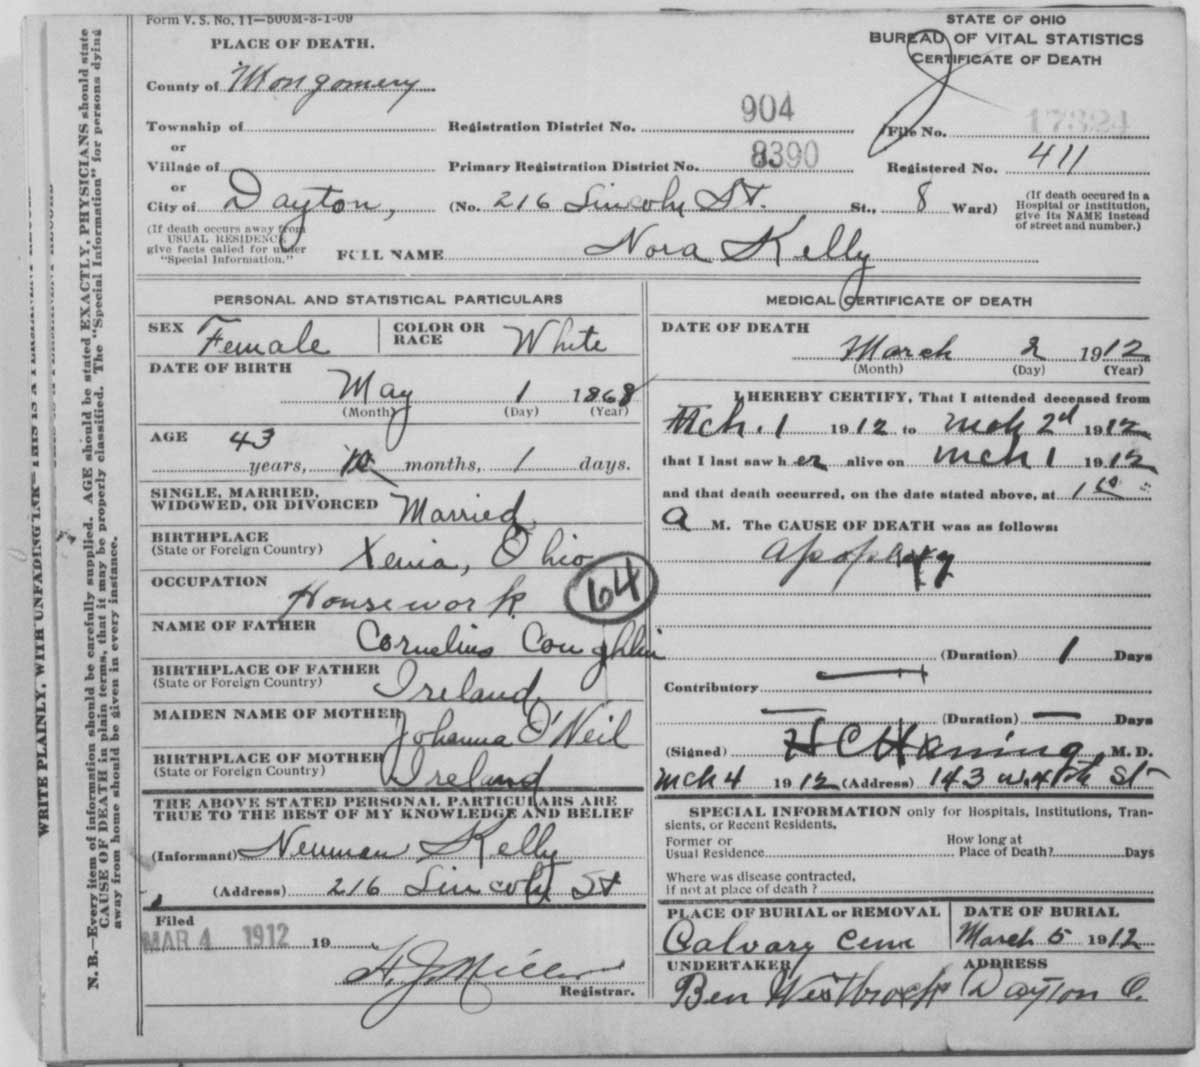 Form V. S. No. 11—500M-3-1-09
PLACE OF DEATH.
STATE OF OHIO
BUREAU OF VITAL STATISTICS
CERTIFICATE OF DEATH
County of Montgomery
Township of
or
Village of
or
City of Dayton,
Registration District No. 904
File No. 17324
Primary Registration District No. 8390
Registered No. 411
(No. 216 Lincoln St. St., 8 Ward)
(If death occured in a
Hospital or institution,
give its NAME instead
of street and number.)
(If death occurs away from
USUAL RESIDENCE
give facts called for under
"Special Information.")
FULL NAME Nora Kelly
PERSONAL AND STATISTICAL PARTICULARS
SEX Female
COLOR OR
RACE White
DATE OF BIRTH
May 1 1868
(Month) (Day) (Year)
AGE 43
years, 10 months, 1 days.
SINGLE, MARRIED,
WIDOWED, OR DIVORCED Married
BIRTHPLACE
(State or Foreign Country) Xenia, Ohio
OCCUPATION
Housework
64
NAME OF FATHER
Cornelius Coughlin
BIRTHPLACE OF FATHER
(State or Foreign Country) Ireland
MAIDEN NAME OF MOTHER
Johanna O'Neil
BIRTHPLACE OF MOTHER
(State or Foreign Country) Ireland
THE ABOVE STATED PERSONAL PARTICULARS ARE
TRUE TO THE BEST OF MY KNOWLEDGE AND BELIEF
(Informant) Newman Kelly
(Address) 216 Lincoln St
Filed
MAR 4 1912 19
H. J. Miller
Registrar.
MEDICAL CERTIFICATE OF DEATH
DATE OF DEATH
March 2 1912
(Month) (Day) (Year)
I HEREBY CERTIFY, That I attended deceased from
Mch. 1 1912 to Mch 2d 1912
that I last saw her alive on Mch 1 1912
and that death occurred, on the date stated above, at 1
a M. The CAUSE OF DEATH was as follows:
apoplexy
(Duration) 1 Days
Contributory
(Duration) — Days
(Signed) H C Haning, M. D.
Mch 4 1912 (Address) 143 W. 4th St
SPECIAL INFORMATION only for Hospitals, Institutions, Tran-
sients, or Recent Residents.
Former or
Usual Residence
How long at
Place of Death? Days
Where was disease contracted,
If not at place of death ?
PLACE OF BURIAL or REMOVAL
Calvary Cem
DATE OF BURIAL
March 5 1912
UNDERTAKER
Ben Westbrock
ADDRESS
Dayton O.
N. B.—Every item of information should be carefully supplied. AGE should be stated EXACTLY, PHYSICIANS should state
CAUSE OF DEATH in plain terms, that it may be properly classified. The "Special Information" for persons dying
away from home should be given in every instance.
WRITE PLAINLY, WITH UNFADING INK—THIS IS A PERMANENT RECORD